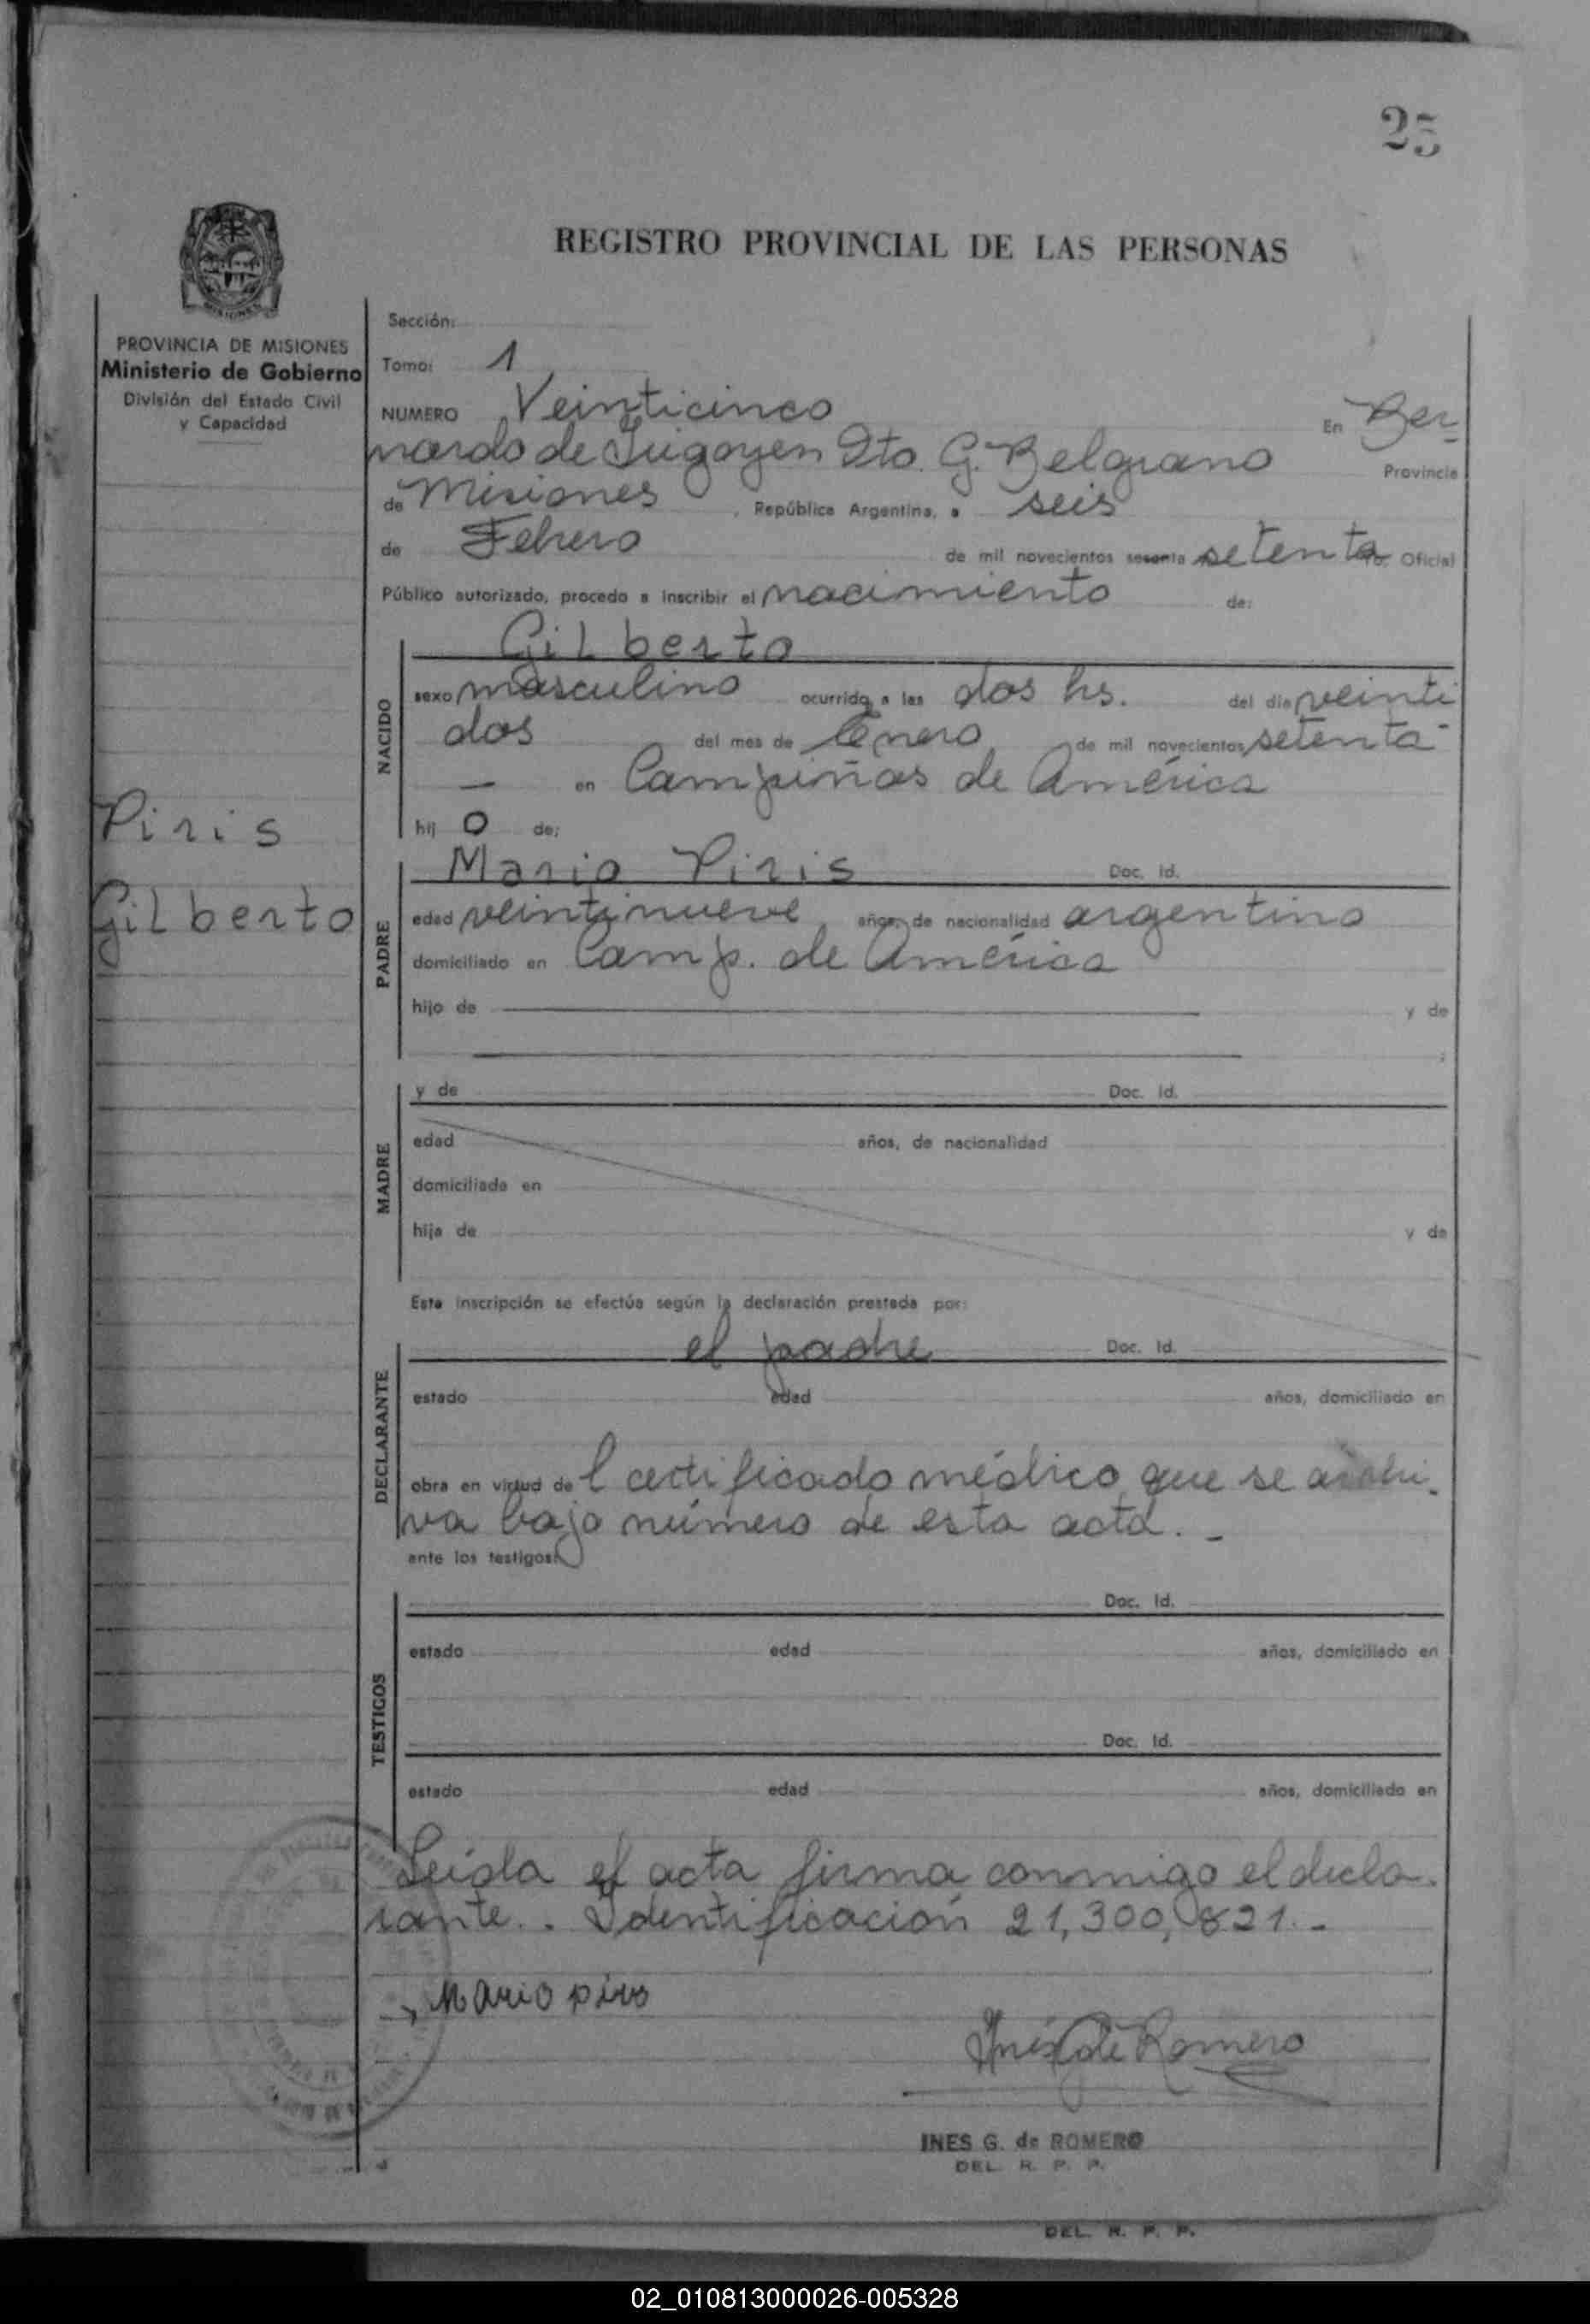 25
REGISTRO PROVINCIAL DE LAS PERSONAS
MISIONES
PROVINCIA DE MISIONES
Ministerio de Gobierno
División del Estado Civil
y Capacidad
Sección:
Tomo: 1
NUMERO Veinticinco En Ber-
nardo de Irigoyen Dto. G. Belgrano Provincia
de Misiones, República Argentina, a seis
de Febrero de mil novecientos sesenta setenta Oficial
Público autorizado, procedo a inscribir el nacimiento de:
Piris
Gilberto
NACIDO
Gilberto
sexo masculino ocurrido a las dos hs. del día veinti
dos del mes de Enero de mil novecientos setenta -
— en Campiñas de América
hij o de:
PADRE
Mario Piris Doc. Id.
edad veintinueve años, de nacionalidad argentino
domiciliado en Camp. de América
hijo de y de
;
MADRE
y de Doc. Id.
edad años, de nacionalidad
domiciliada en
hija de y de
Esta inscripción se efectúa según la declaración prestada por:
DECLARANTE
el padre Doc. Id.
estado edad años, domiciliado en
obra en virtud de l certificado médico que se archi-
va bajo número de esta acta. -
ante los testigos:
TESTIGOS
Doc. Id.
estado edad años, domiciliado en
Doc. Id.
estado edad años, domiciliado en
Leída el acta firma conmigo el decla-
rante. . Identificación 21,300,821.-
Mario piris
Inés G de Romero
INES G. de ROMERO
DEL. R. P. P.
DEL. R. P. P.
02_010813000026-005328